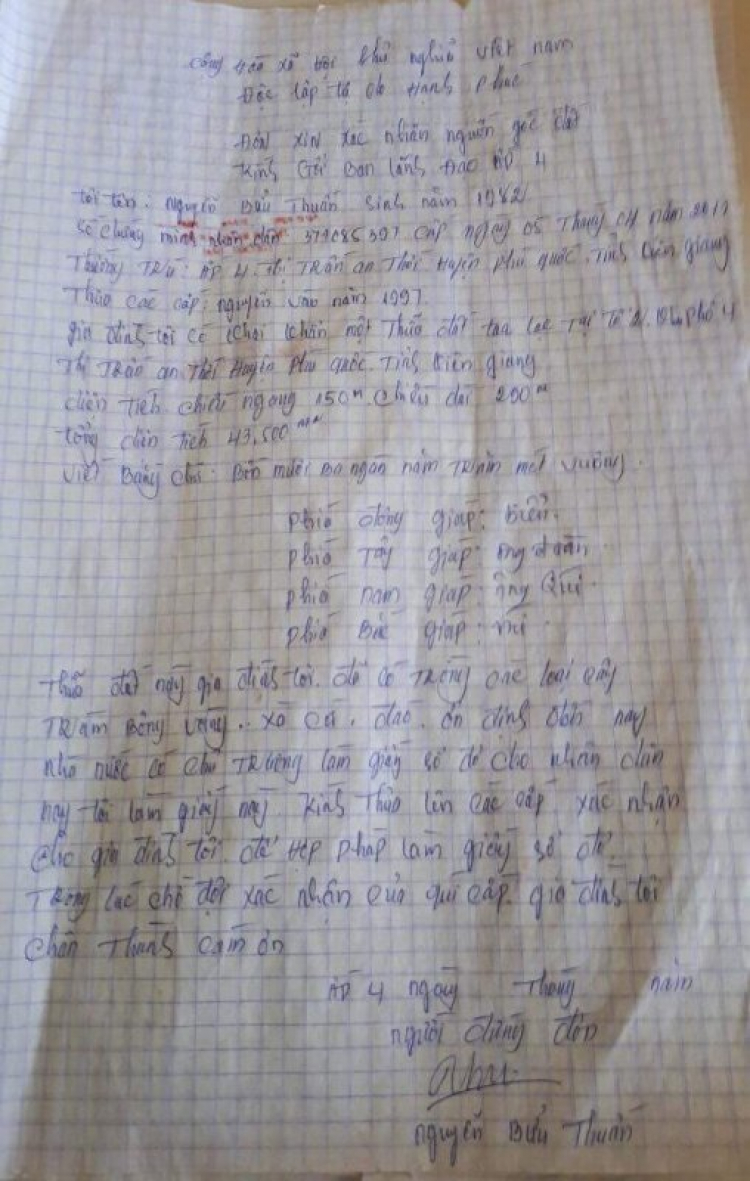 Cộng Hòa xã hội chủ nghĩa việt nam
Độc lập tự do Hạnh phúc
Đơn xin xác nhận nguồn gốc đất
Kính Gởi Ban lãnh Đạo ấp 4
tôi tên: Nguyễn Bửu Thuấn sinh năm 1982
số chứng minh nhân dân: 371085397 cấp ngày 05 Tháng 04 năm
Thường Trú: ấp 4. thị Trấn an Thới Huyện phú quốc. Tỉnh kiên giang
Thưa các cấp: nguyên vào năm 1997.
gia đình tôi có khai khẩn một Thửa đất tọa lạc Tại Tổ khu phố 4
Thị Trấn an Thới Huyện Phú quốc. Tỉnh kiên giang
diện tích chiều ngang 150m. chiều dài 290m
tổng diện tích 43.500
viết Bằng chữ: Bốn mươi Ba ngàn năm Trăm mét vuông.
phía đông giáp: biển.
phía Tây giáp: ông
phía nam giáp: ông Quí.
phía Bắc giáp:
Thửa đất này gia đình tôi. đã có Trồng các loại cây
TRàm Bông vàng.. xà cừ. đào. ổn định đến nay
nhà nước có chủ TRương làm giấy sổ đỏ cho nhân dân
nay tôi làm giấy này. Kính Thưa lên các cấp xác nhận
cho gia đình tôi. để Hợp pháp làm giấy sổ đỏ.
TRong lúc chờ đợi xác nhận của quí cấp. gia đình tôi
chân Thành cảm ơn
ấp 4 ngày Tháng năm
người đứng đơn
nguyễn Bửu Thuấn